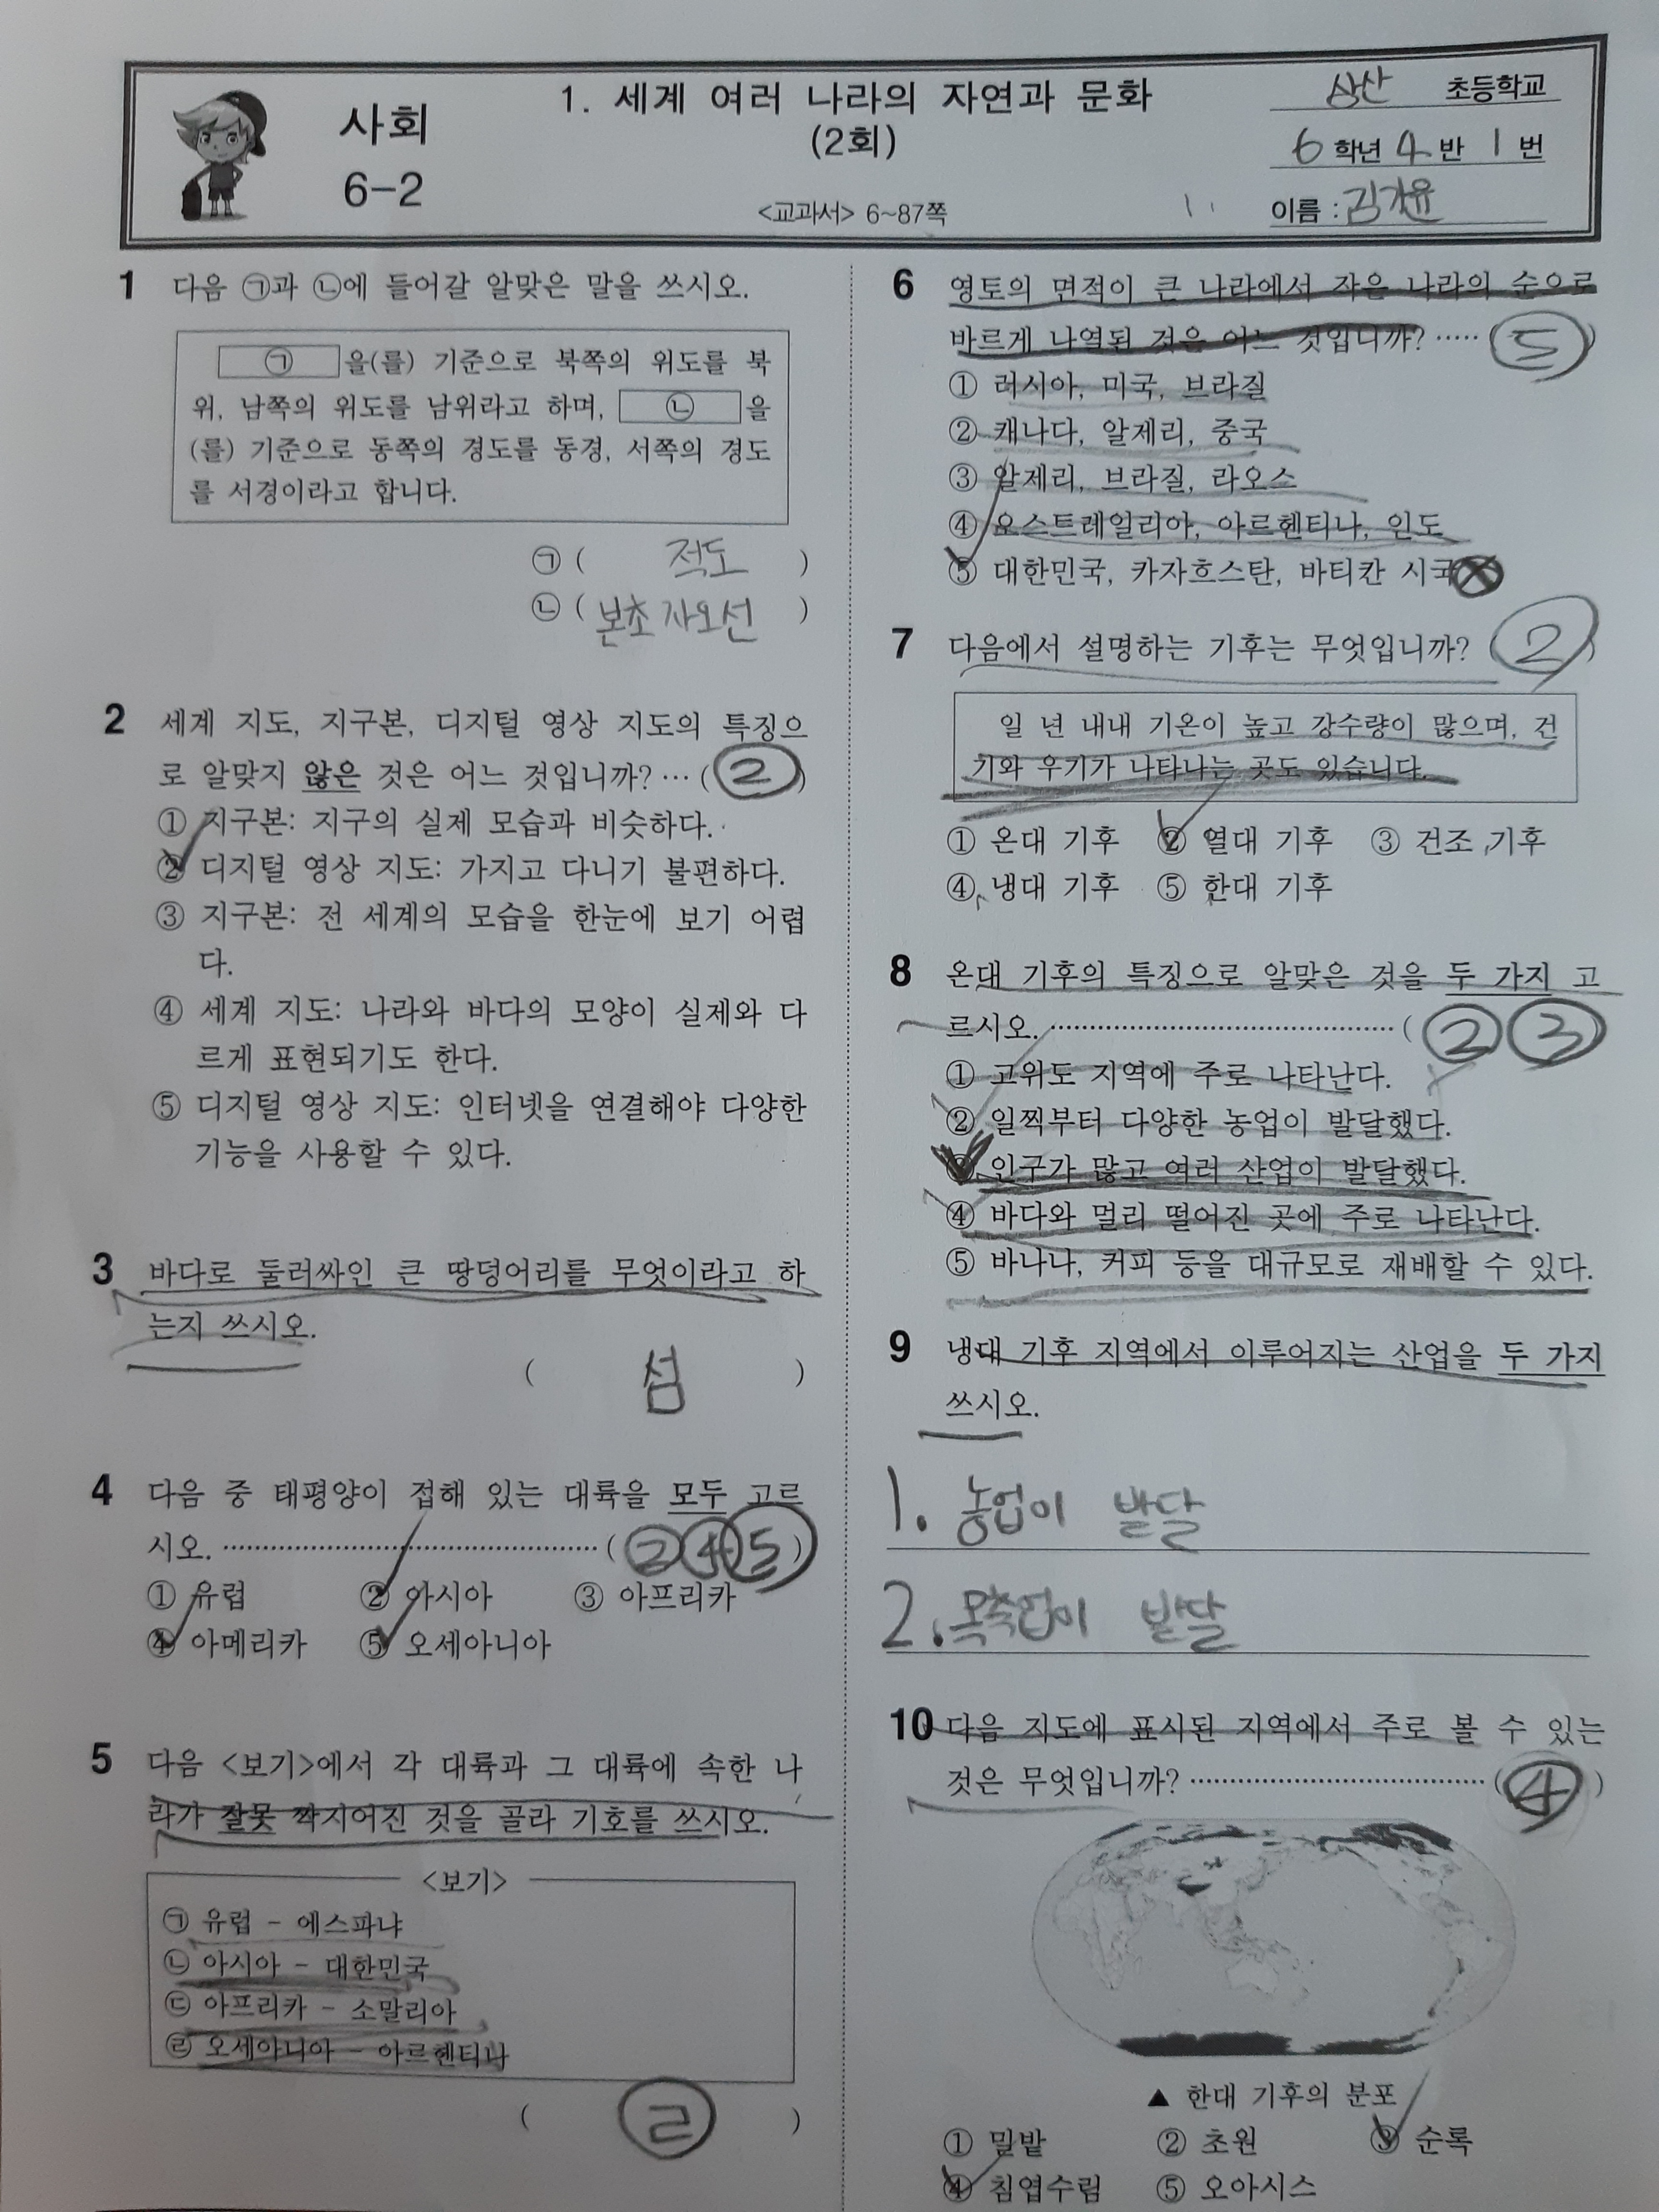 사회
6-2
1. 세계 여러 나라의 자연과 문화
(2회)
<교과서> 6~87쪽
상산 초등학교
6 학년 4 반 1 번
이름 :
1 다음 ㉠과 ㉡에 들어갈 알맞은 말을 쓰시오.
㉠ 을(를) 기준으로 북쪽의 위도를 북
위, 남쪽의 위도를 남위라고 하며, ㉡ 을
(를) 기준으로 동쪽의 경도를 동경, 서쪽의 경도
를 서경이라고 합니다.
㉠ ( 적도 )
㉡ ( 본초 자오선 )
2 세계 지도, 지구본, 디지털 영상 지도의 특징으
로 알맞지 않은 것은 어느 것입니까? … ( ② )
① 지구본: 지구의 실제 모습과 비슷하다.
② 디지털 영상 지도: 가지고 다니기 불편하다.
③ 지구본: 전 세계의 모습을 한눈에 보기 어렵
다.
④ 세계 지도: 나라와 바다의 모양이 실제와 다
르게 표현되기도 한다.
⑤ 디지털 영상 지도: 인터넷을 연결해야 다양한
기능을 사용할 수 있다.
3 바다로 둘러싸인 큰 땅덩어리를 무엇이라고 하
는지 쓰시오.
( 섬 )
4 다음 중 태평양이 접해 있는 대륙을 모두 고르
시오. ………………………………… ( ② ④ ⑤ )
① 유럽 ② 아시아 ③ 아프리카
④ 아메리카 ⑤ 오세아니아
5 다음 <보기>에서 각 대륙과 그 대륙에 속한 나
라가 잘못 짝지어진 것을 골라 기호를 쓰시오.
<보기>
㉠ 유럽 - 에스파냐
㉡ 아시아 - 대한민국
㉢ 아프리카 - 소말리아
㉣ 오세아니아 - 아르헨티나
( ㉣ )
6 영토의 면적이 큰 나라에서 작은 나라의 순으로
바르게 나열된 것은 어느 것입니까? ····· ( ⑤ )
① 러시아, 미국, 브라질
② 캐나다, 알제리, 중국
③ 알제리, 브라질, 라오스
④ 오스트레일리아, 아르헨티나, 인도
⑤ 대한민국, 카자흐스탄, 바티칸 시국
7 다음에서 설명하는 기후는 무엇입니까? ( ② )
일 년 내내 기온이 높고 강수량이 많으며, 건
기와 우기가 나타나는 곳도 있습니다.
① 온대 기후 ② 열대 기후 ③ 건조 기후
④ 냉대 기후 ⑤ 한대 기후
8 온대 기후의 특징으로 알맞은 것을 두 가지 고
르시오. ………………………………… ( ② ③ )
① 고위도 지역에 주로 나타난다.
② 일찍부터 다양한 농업이 발달했다.
③ 인구가 많고 여러 산업이 발달했다.
④ 바다와 멀리 떨어진 곳에 주로 나타난다.
⑤ 바나나, 커피 등을 대규모로 재배할 수 있다.
9 냉대 기후 지역에서 이루어지는 산업을 두 가지
쓰시오.
1. 농업이 발달
2. 목축업이 발달
10 다음 지도에 표시된 지역에서 주로 볼 수 있는
것은 무엇입니까? ………………………… ( ④ )
▲ 한대 기후의 분포
① 밀밭 ② 초원 ③ 순록
④ 침엽수림 ⑤ 오아시스